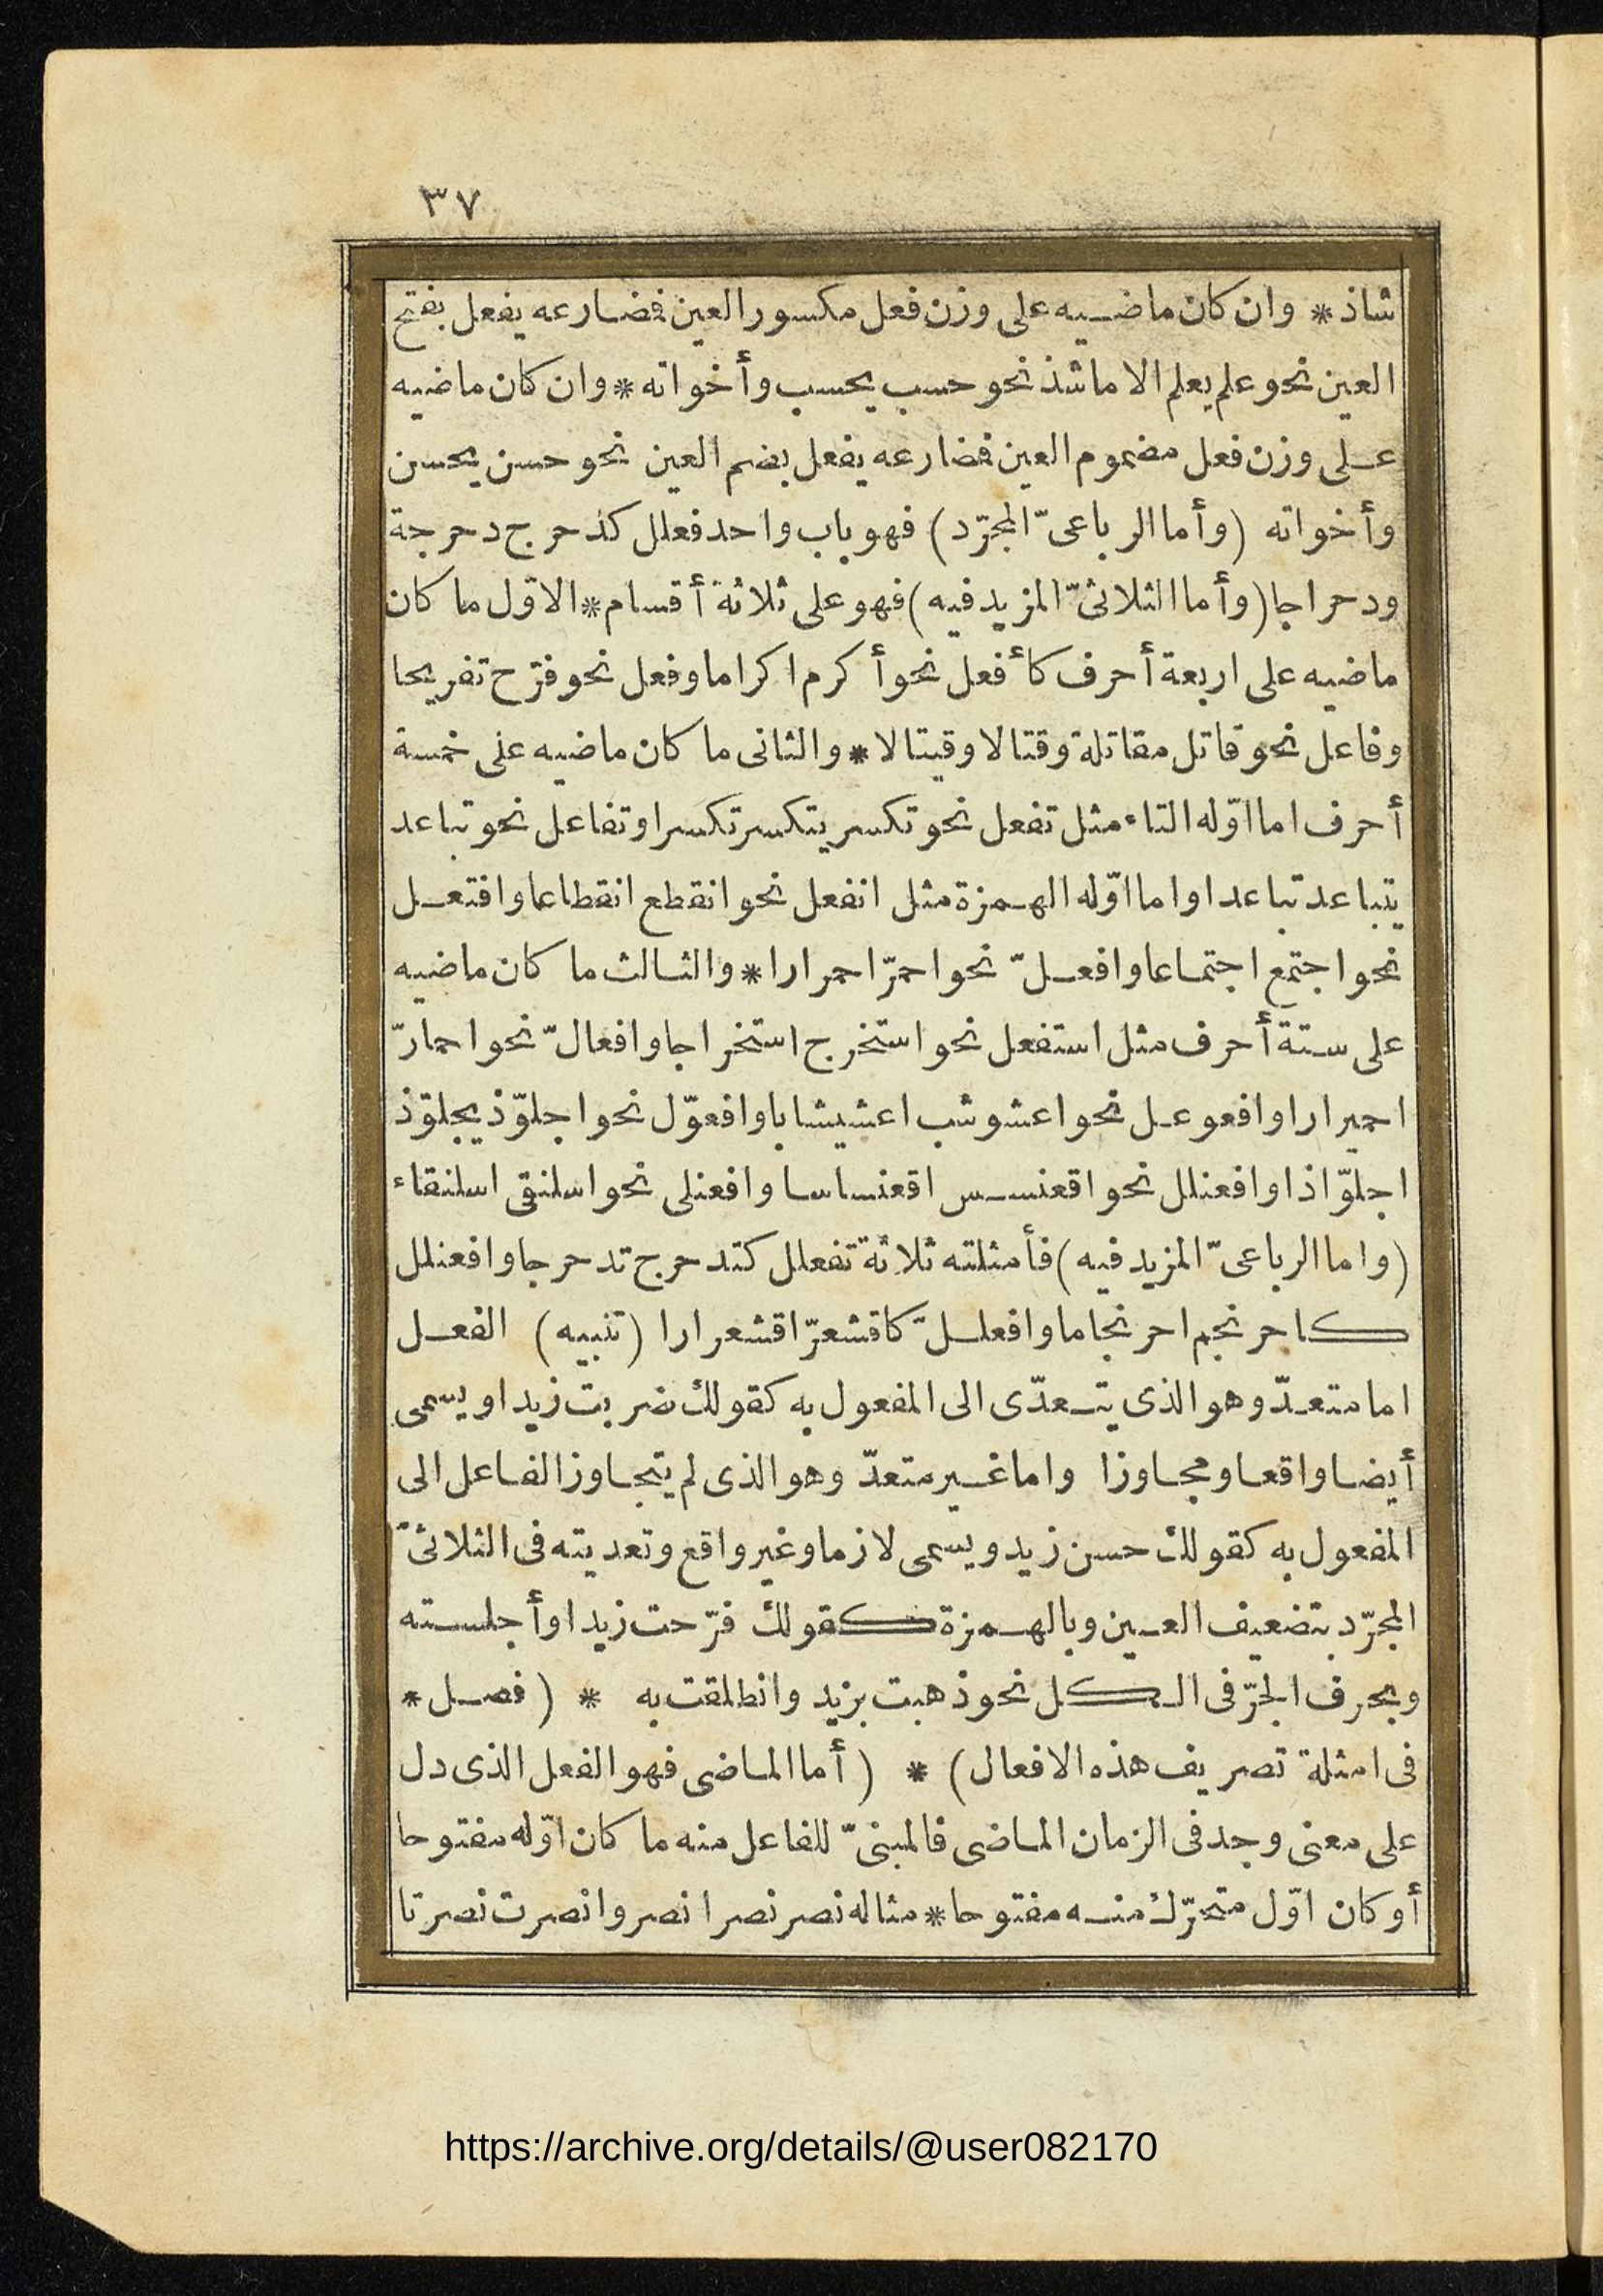 ٣٧
شاذ * وان كان ماضيه على وزن فعل مكسور العين فضارعه يفعل بفتح
العين نحو علم يعلم الا ما شذ نحو حسب يحسب وأخواته * وان كان ماضيه
على وزن فعل مضموم العين فضارعه يفعل بضم العين نحو حسن يحسن
وأخواته (وأما الرباعىّ المجرّد) فهو باب واحد فعلل كذحرج دحرجة
ودحراجا (وأما الثلاثىّ المزيد فيه) فهو على ثلاثة أقسام * الاوّل ما كان
ماضيه على اربعة أحرف كأفعل نحو أكرم اكراما وفعل نحو فرّح تفريحا
وفاعل نحو قاتل مقاتلة وقتالا وقيتالا * والثانى ما كان ماضيه على خمسة
أحرف اما اوّله التاء مثل تفعل نحو تكسر يتكسر تكسرا وتفاعل نحو تباعد
يتباعد تباعدا واما اوّله الهمزة مثل انفعل نحو انقطع انقطاعا وافتعل
نحو اجتمع اجتماعا وافعلّ نحو احمرّ احمرارا * والثالث ما كان ماضيه
على ستة أحرف مثل استفعل نحو استخرج استخراجا وافعالّ نحو احمارّ
احميرارا وافعوعل نحو اعشوشب اعشيشابا وافعوّل نحو اجلوّذ يجلوّذ
اجلوّاذا وافعنلل نحو اقعنسس اقعنساسا وافعنلى نحو اسلنقى اسلنقاء
(واما الرباعىّ المزيد فيه) فأمثلته ثلاثة تفعلل كتدحرج تدحرجا وافعنلل
كاحرنجم احرنجاما وافعللّ كاقشعرّ اقشعرارا (تنبيه) الفعل
اما متعدّ وهو الذى يتعدّى الى المفعول به كقولك ضربت زيدا ويسمى
أيضا واقعا ومجاوزا واما غير متعدّ وهو الذى لم يتجاوز الفاعل الى
المفعول به كقولك حسن زيد ويسمى لازما وغير واقع وتعديته فى الثلاثىّ
المجرّد بتضعيف العين وبالهمزة كقولك فرّحت زيدا وأجلسته
وبحرف الجرّ فى الكل نحو ذهبت بزيد وانطلقت به * (فصل *
فى امثلة تصريف هذه الافعال) * (أما الماضى فهو الفعل الذى دل
على معنى وجد فى الزمان الماضى فالمبنىّ للفاعل منه ما كان اوّله مفتوحا
أو كان اوّل متحرّك منه مفتوحا * مثاله نصر نصرا نصروا نصرت نصرتا
https://archive.org/details/@user082170